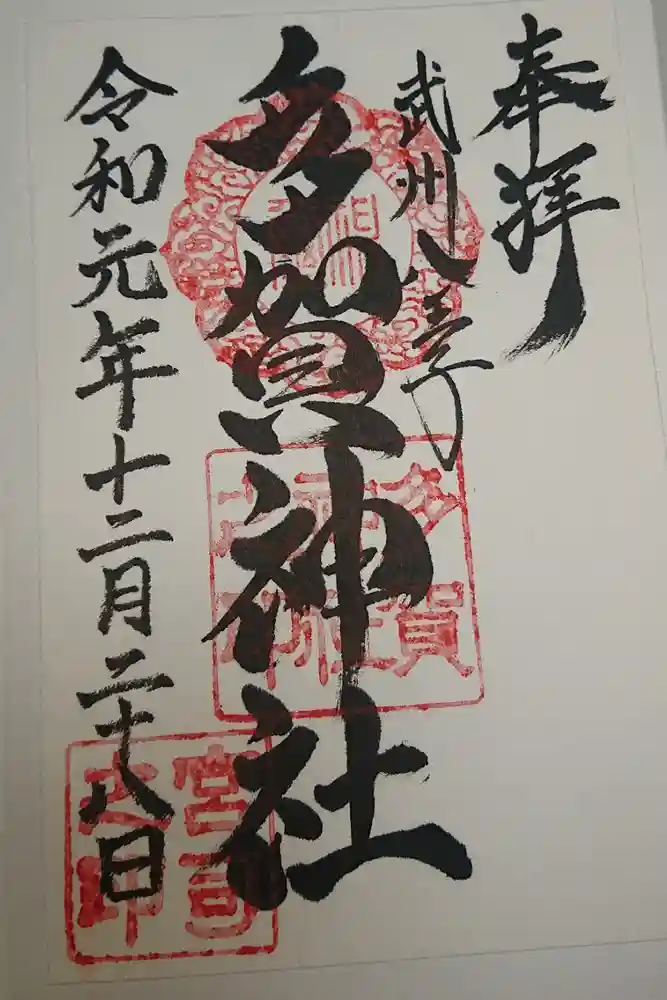 奉拝
武州八王子
多賀神社
令和元年十二月二十八日
多賀
神社
宮司
之印